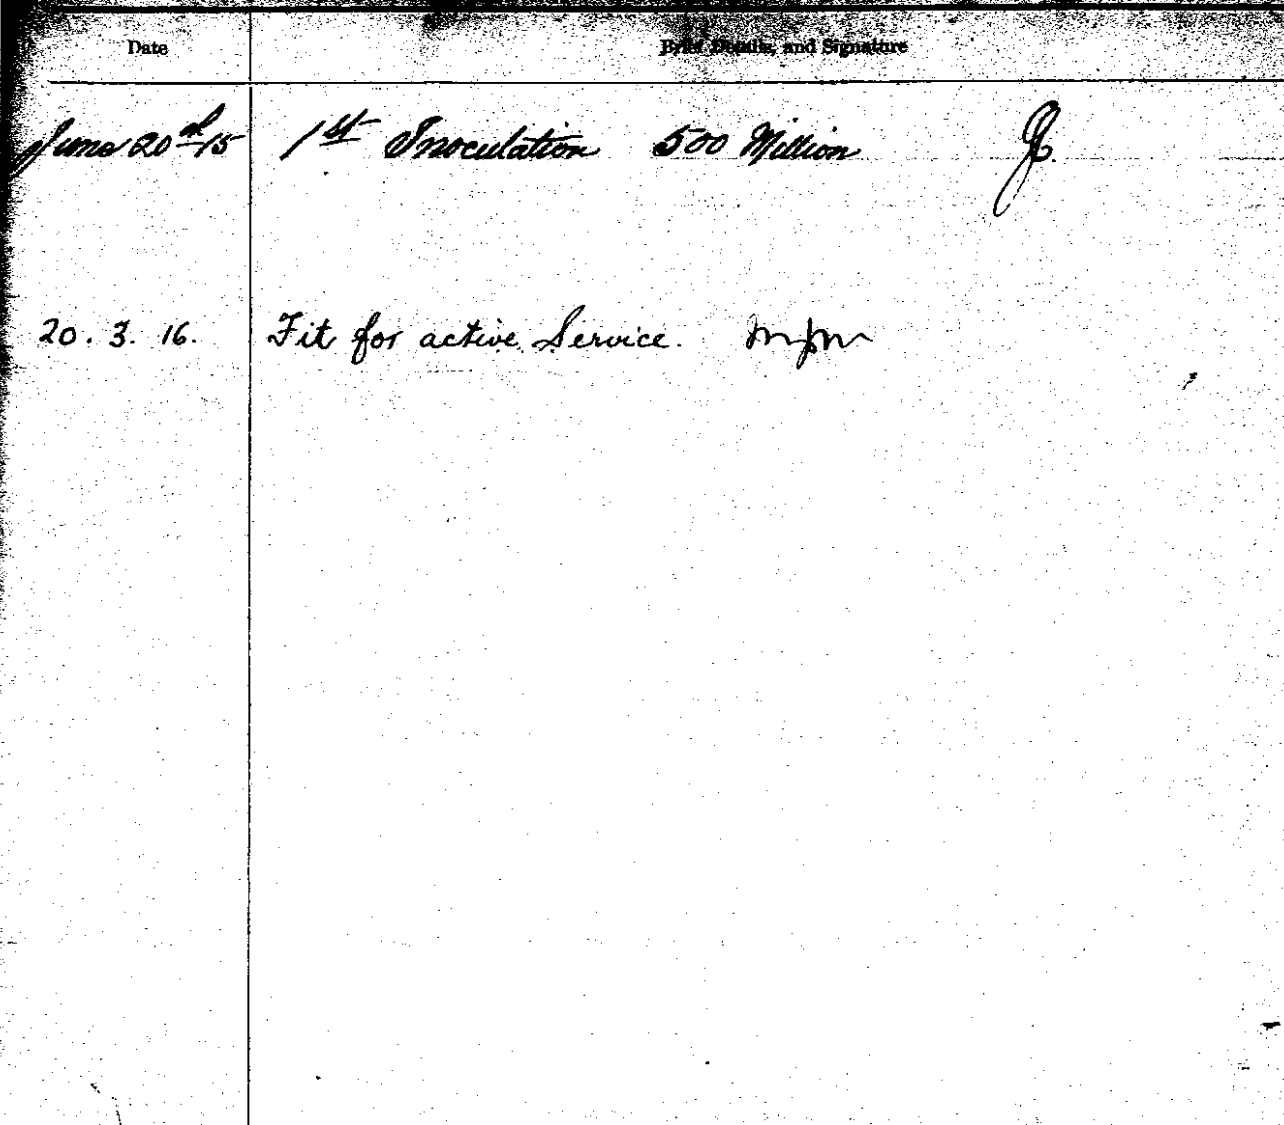 Date Brief Details, and Signature
June 20th/15 1st Inoculation 500 Million
20.3.16. Fit for active Service.